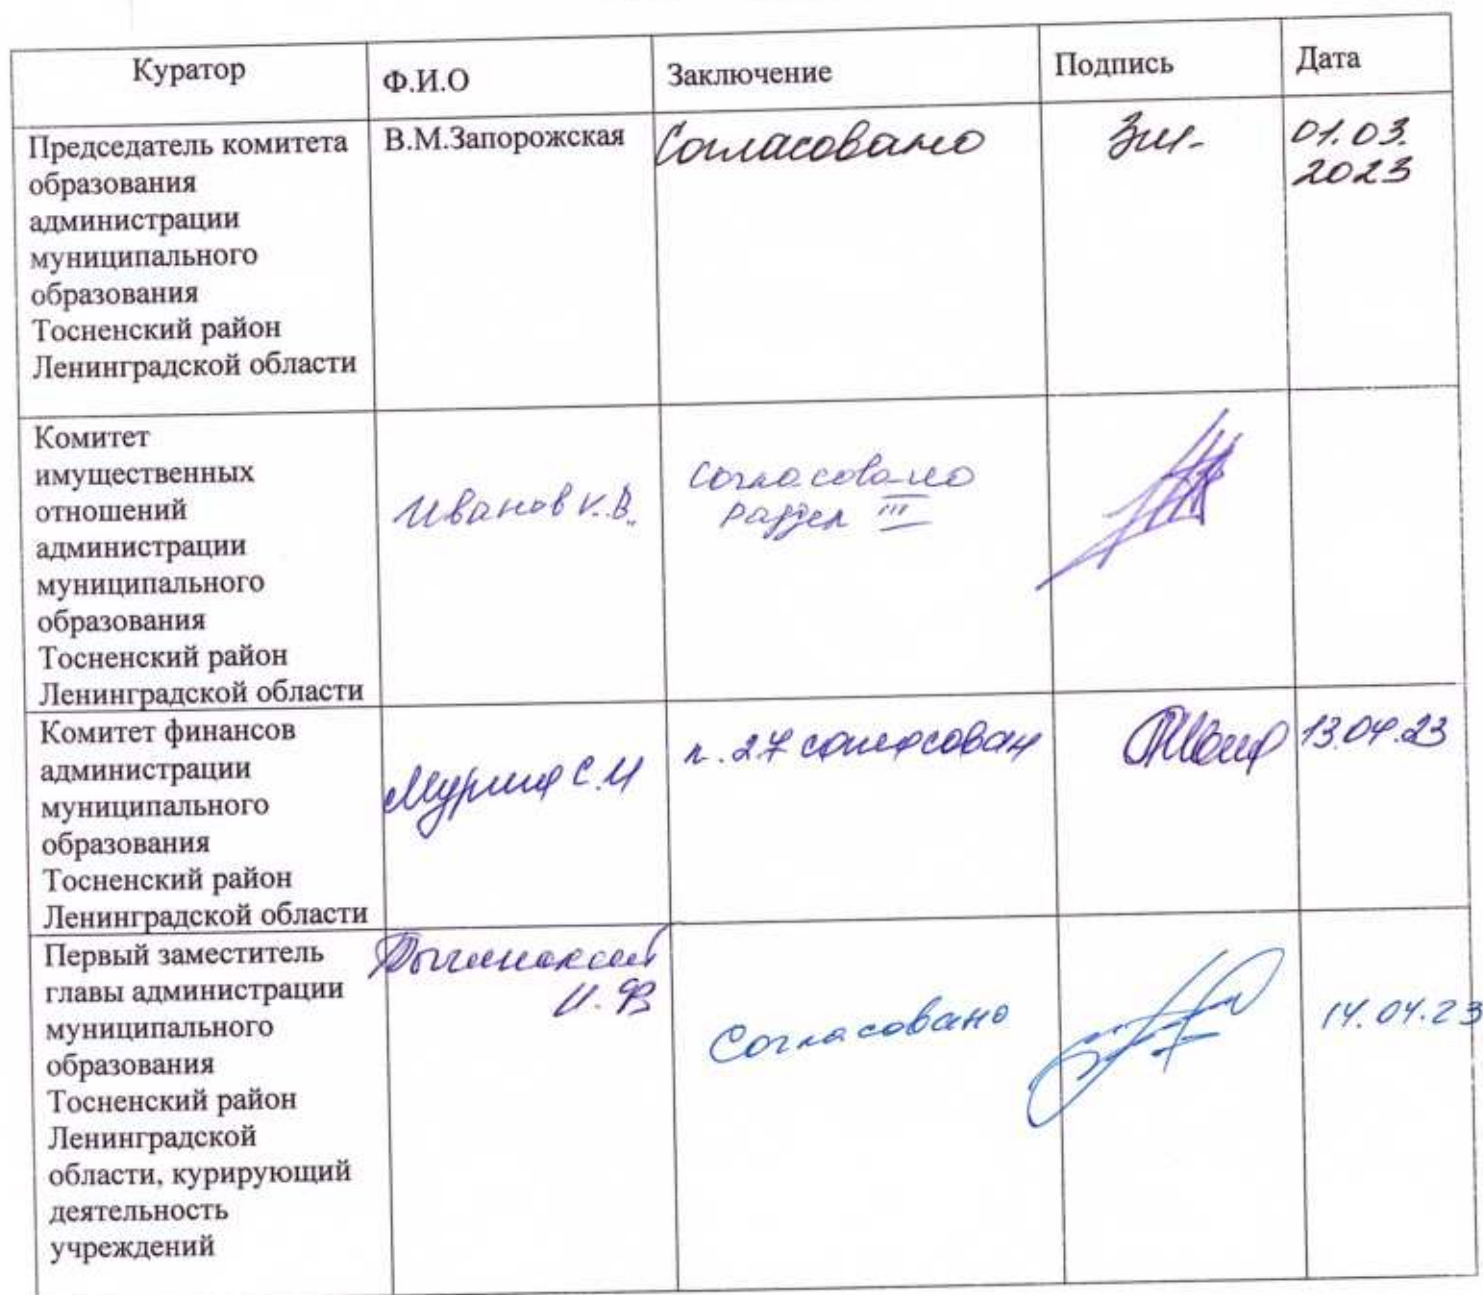 Куратор
Ф.И.О
Заключение
Подпись
Дата
Председатель комитета
образования
администрации
муниципального
образования
Тосненский район
Ленинградской области
В.М.Запорожская
Согласовано
01.03.
2023
Комитет
имущественных
отношений
администрации
муниципального
образования
Тосненский район
Ленинградской области
Иванов К.В.
Согласовано
раздел III
Комитет финансов
администрации
муниципального
образования
Тосненский район
Ленинградской области
С.И
п. 27 согласован
13.04.23
Первый заместитель
главы администрации
муниципального
образования
Тосненский район
Ленинградской
области, курирующий
деятельность
учреждений
И.Ф
Согласовано
14.04.23